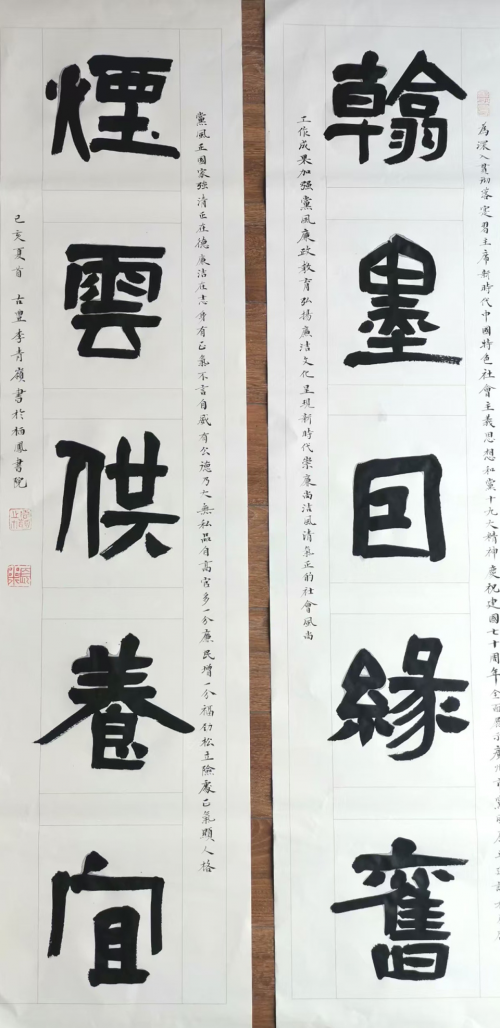 為深入貫彻落定習主席新時代中國特色社會主義思想和黨十九大精神 慶祝建國七十周年
翰墨囙緣舊
工作成果加强黨風廉政教育弘揚廉洁文化呈現新時代崇廉尚洁風清氣正的社會風尚
黨風正國家强清正在德廉洁在志身有正氣不言自威有公德乃大無私品自高官多一分廉民增一分福勁松立險處正氣顯人格
煙雲供養宜
己亥夏首 古豐李青嶺書於栖鳳書院